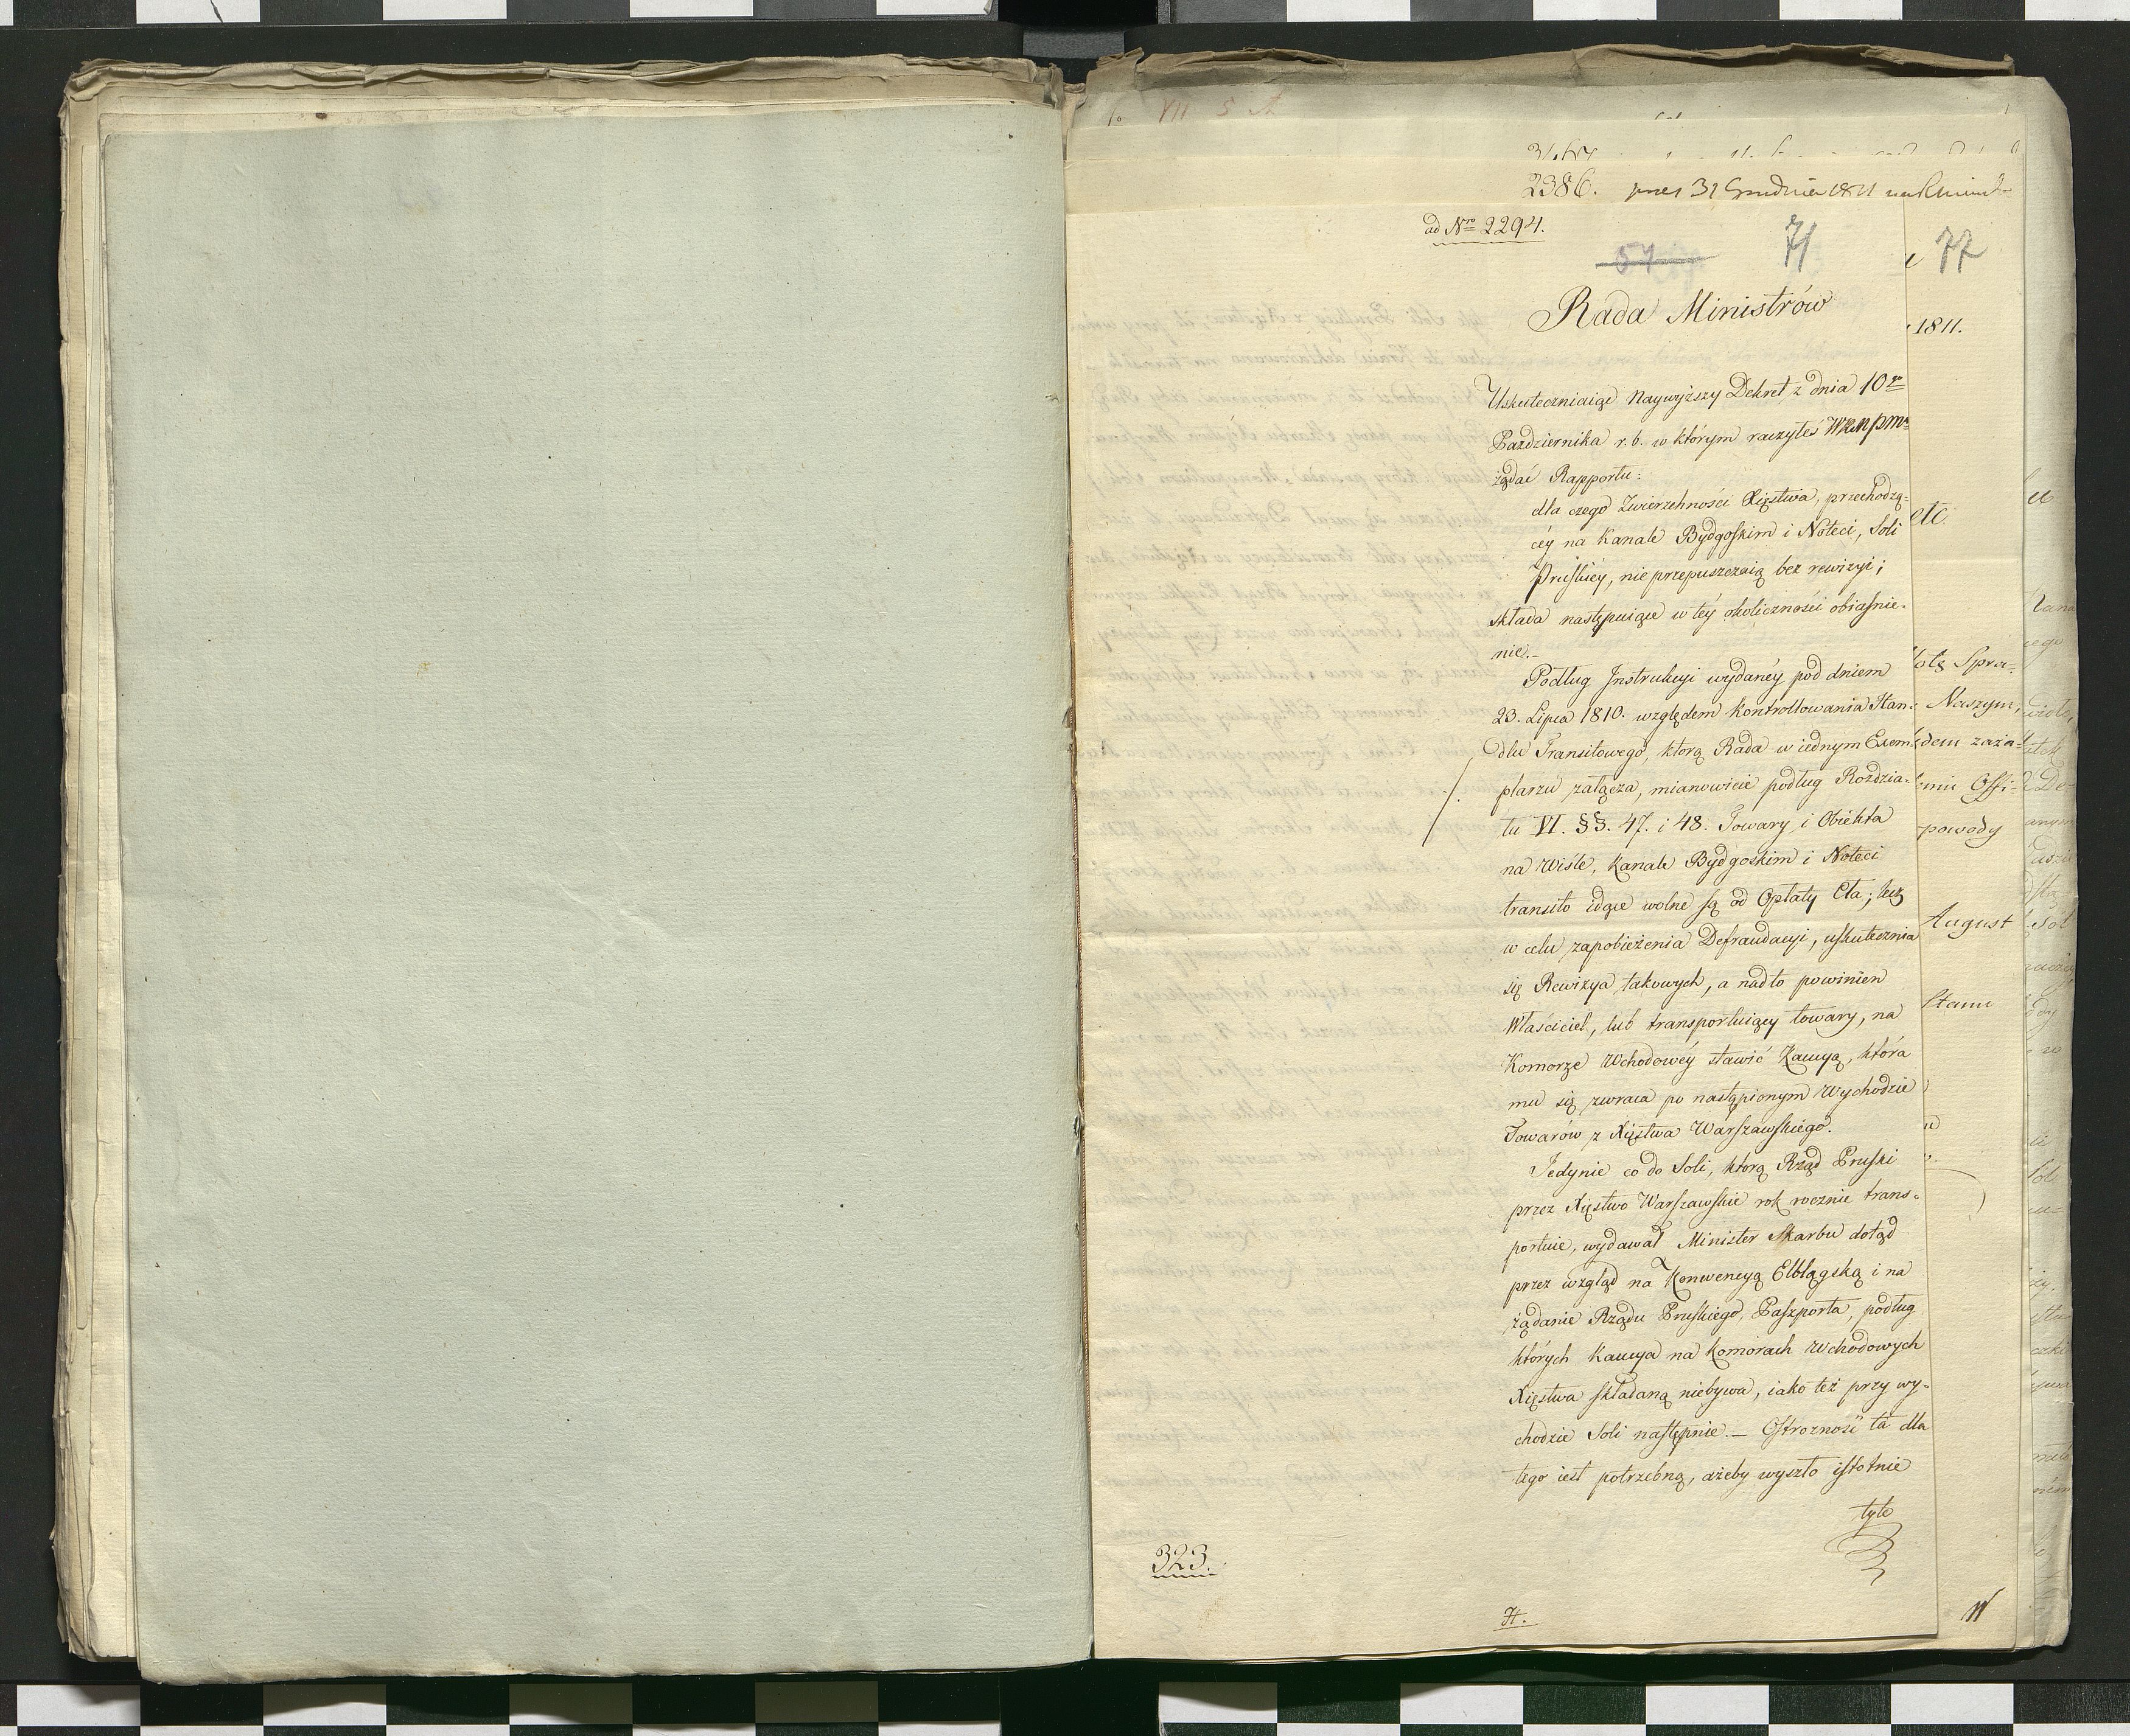 2386. przez 31 Grudnia 1811
ad Nro 2294.
54 71
77
Rada Ministrów
1811.
Uskuteczniaiąc Naywyższy Dekret z dnia 10go
Października r. b. w którym raczyłeś WKMPM
żądać Rapportu:
dla czego Zwierzchności Xięstwa, przechodzą-
cey na Kanale Bydgoskim i Noteci, Soli
Pruskiey, nie przepuszczaią bez rewizyi;
składa następuiące w tey okoliczności obiaśnie-
nie.-
Podług Instrukcyi wydaney pod dniem
23. Lipca 1810. względem kontrollowania Han-
dlu Transitowego, którą Rada w iednym Exem-
plarzu załącza, mianowicie podług Rozdzia-
łu VI. §§. 47. i 48. Towary i Obiekta
na Wiśle, Kanale Bydgoskim i Noteci
transito idące wolne są od Opłaty Cła; lecz
w celu zapobieżenia Defraudacyi, uskutecznia
się Rewizya takowych, a nadto powinien
Właściciel, lub transportuiący towary, na
Komorze Wchodowéy stawić Kaucyą, która
mu się zwraca po nastąpionym Wychodzie
Towarów z Xięstwa Warszawskiego.
Jedynie co do Soli, którą Rząd Pruski
przez Xięstwo Warszawskie rok rocznie trans-
portuie, wydawał Minister Skarbu dotąd
przez wzgląd na Konwencyą Elblągską i na
żądanie Rządu Pruskiego, Paszporta, podług
których Kaucya na Komorach Wchodowych
Xięstwa składaną niebywa, iako też przy wy-
chodzie Soli następnie.— Ostrozność ta dla
tego iest potrzebną, ażeby wyszło istotnie
tyle
323.
H.
etc.
Naszym,
powody
August
Stanu